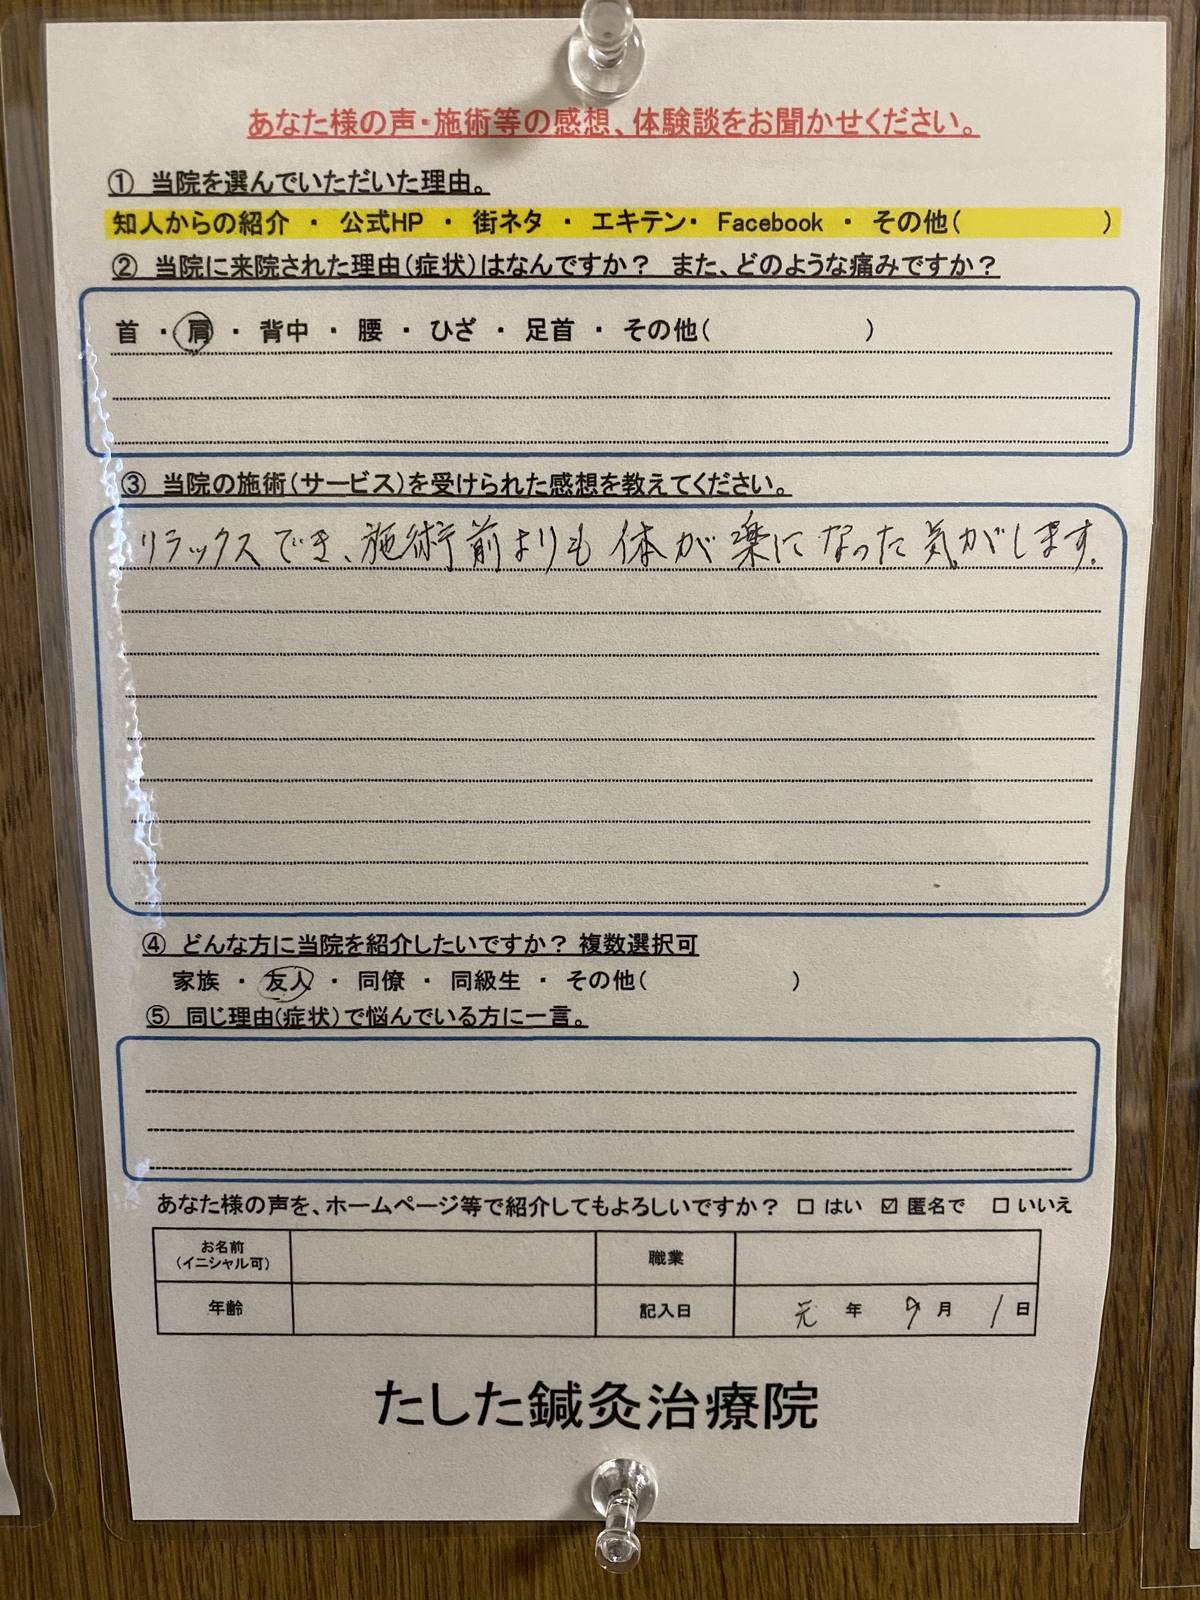 あなた様の声・施術等の感想、体験談をお聞かせください。
① 当院を選んでいただいた理由。
知人からの紹介 ・ 公式HP ・ 街ネタ ・ エキテン・ Facebook ・ その他( )
② 当院に来院された理由(症状)はなんですか? また、どのような痛みですか?
首 ・ 肩 ・ 背中 ・ 腰 ・ ひざ ・ 足首 ・ その他( )
③ 当院の施術(サービス)を受けられた感想を教えてください。
リラックスでき、施術前よりも体が楽になった気がします。
④ どんな方に当院を紹介したいですか? 複数選択可
家族 ・ 友人 ・ 同僚 ・ 同級生 ・ その他( )
⑤ 同じ理由(症状)で悩んでいる方に一言。
あなた様の声を、ホームページ等で紹介してもよろしいですか? □ はい ☑ 匿名で □ いいえ
お名前
(イニシャル可)
職業
年齢
記入日
元 年 9 月 1 日
たした鍼灸治療院